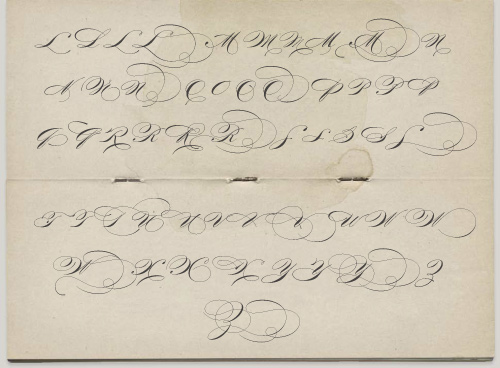 L L L L M M M M M N
N N N O O O O P P P P
Q Q R R R R S S S S S
T T T U U V V V W W W
W X X X Y Y Y Z
Z